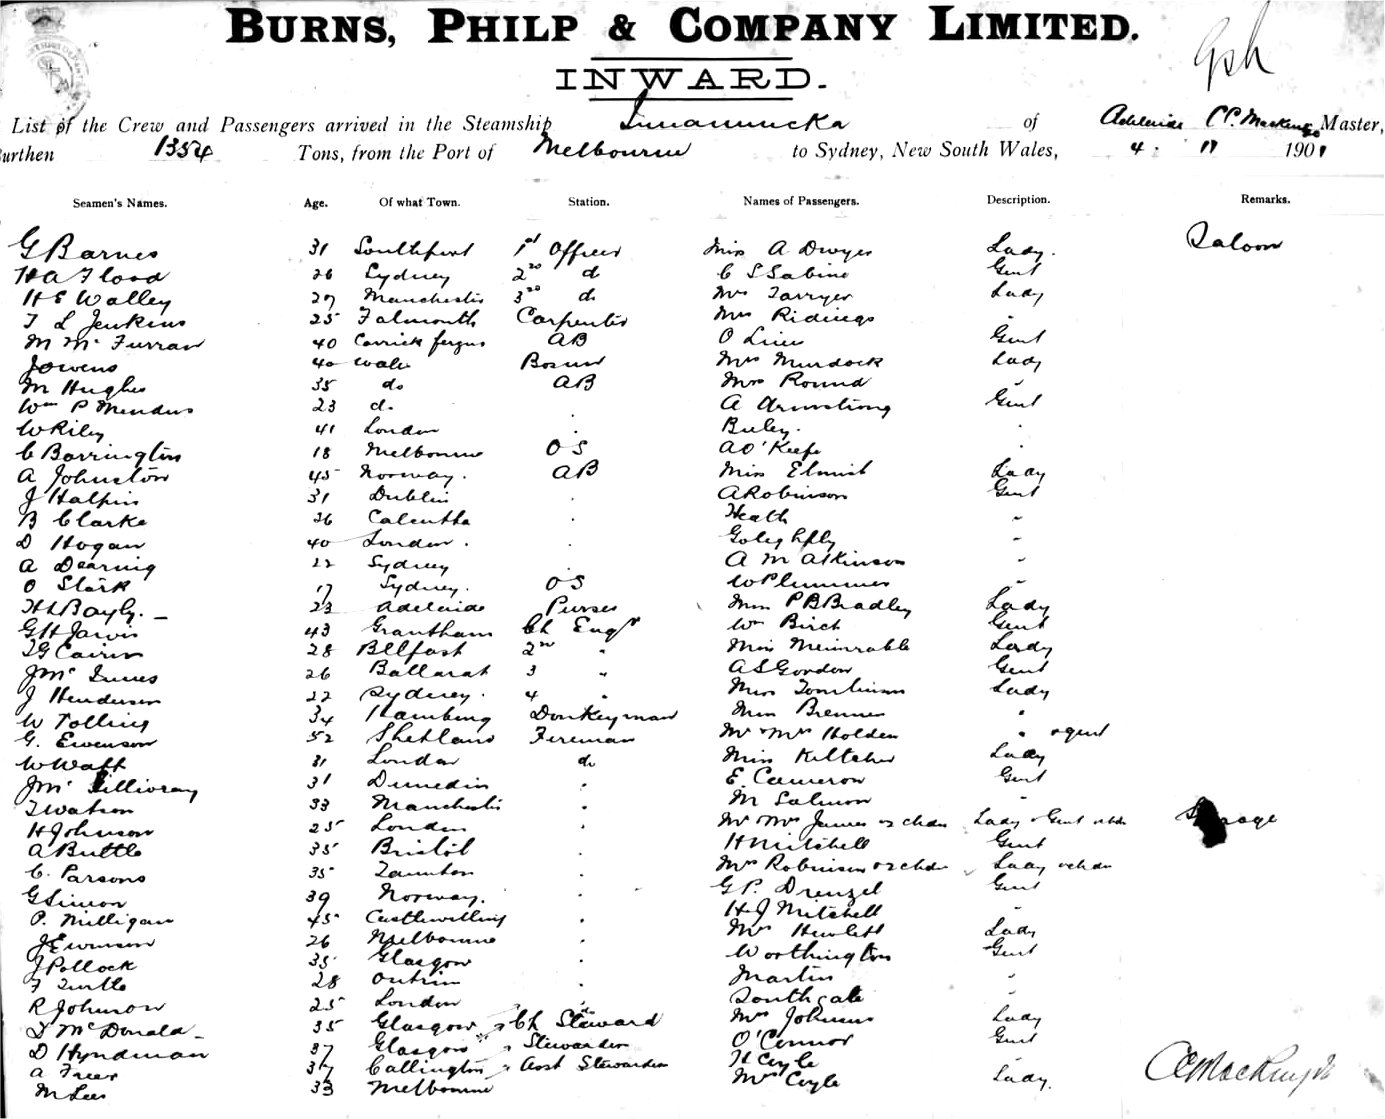 BURNS, PHILP & COMPANY LIMITED.
INWARD.
List of the Crew and Passengers arrived in the Steamship Innamincka of Adelaide Master,
Burthen 1354 Tons, from the Port of Melbourne to Sydney, New South Wales, 4 11 1901
Seamen's Names. Age. Of what Town. Station. Names of Passengers. Description. Remarks.
G Barnes 31 Southport 1st Officer Miss A Dwyer Lady. Saloon
H A Flood 26 Sydney 2nd d C S Sabine Gent
H E Walley 27 Manchester 3rd do Mrs Tarryer Lady
T L Jenkins 25 Falmouth Carpenter Mrs Ridings "
M Mc Furran 40 Carrick fergus AB O Gent
J Owens 40 Wales Bosun Mrs Murdock Lady
M Hughes 35 do AB Mrs Round "
Wm P 23 do A Armstrong Gent
W Riley 41 London " "
C Barrington 18 Melbourne OS A O'Keefe "
A Johnston 45 Norway. AB Miss Lady
J Halpin 31 Dublin " A Robinson Gent
B Clarke 26 Calcutta " Heath "
D Hogan 40 London. " Golighfly "
A Dearing 22 Sydney " A M Atkinson "
O Stark 17 Sydney. OS W Plummer "
H L Bayly. 23 Adelaide Purser P B Bradley Lady
G H Jarvis 43 Grantham Ch Engr Wm Birch Gent
T G Cairns 28 Belfast 2nd " Miss Lady
J Mc Innes 26 Ballarat 3 " A S Gordon Gent
J Henderson 22 Sydney. 4 " Miss Tomlinson Lady
W Tolling 34 Hamburg Donkeyman Miss Brenner "
G. Ewenson 52 Shetland Fireman Mr Mrs Holden " & gent
W Watt 31 London do Miss Lady
J Mc Gillivray 31 Dunedin " E Cameron Gent
T Watson 33 Manchester " M Salmon "
H Johnson 25 London " Mr Mrs James or 2 chdn Lady & Gent chdn Steerage
A Buttle 35 Bristol " H Mitchell Gent
C. Parsons 35 Taunton " Mrs Robinson or 2 chdn Lady & chdn
G Simon 39 Norway. " G P. Drenzel Gent
P. Milligan 45 " H J Mitchell "
J Ewenson 26 Melbourne " Mrs Hewlett Lady
J Pollock 35 Glasgow " Worthington Gent
F Turtle 28 " Martin "
R Johnson 25 London " Southgate "
D McDonald 35 Glasgow Ch Steward Mrs Johnson Lady
D Hyndman 37 Glasgow Stewardess O'Connor Gent
A Freer 37 Callington Asst Stewardess H Coyle "
M Lees 33 Melbourne Mrs Coyle Lady.